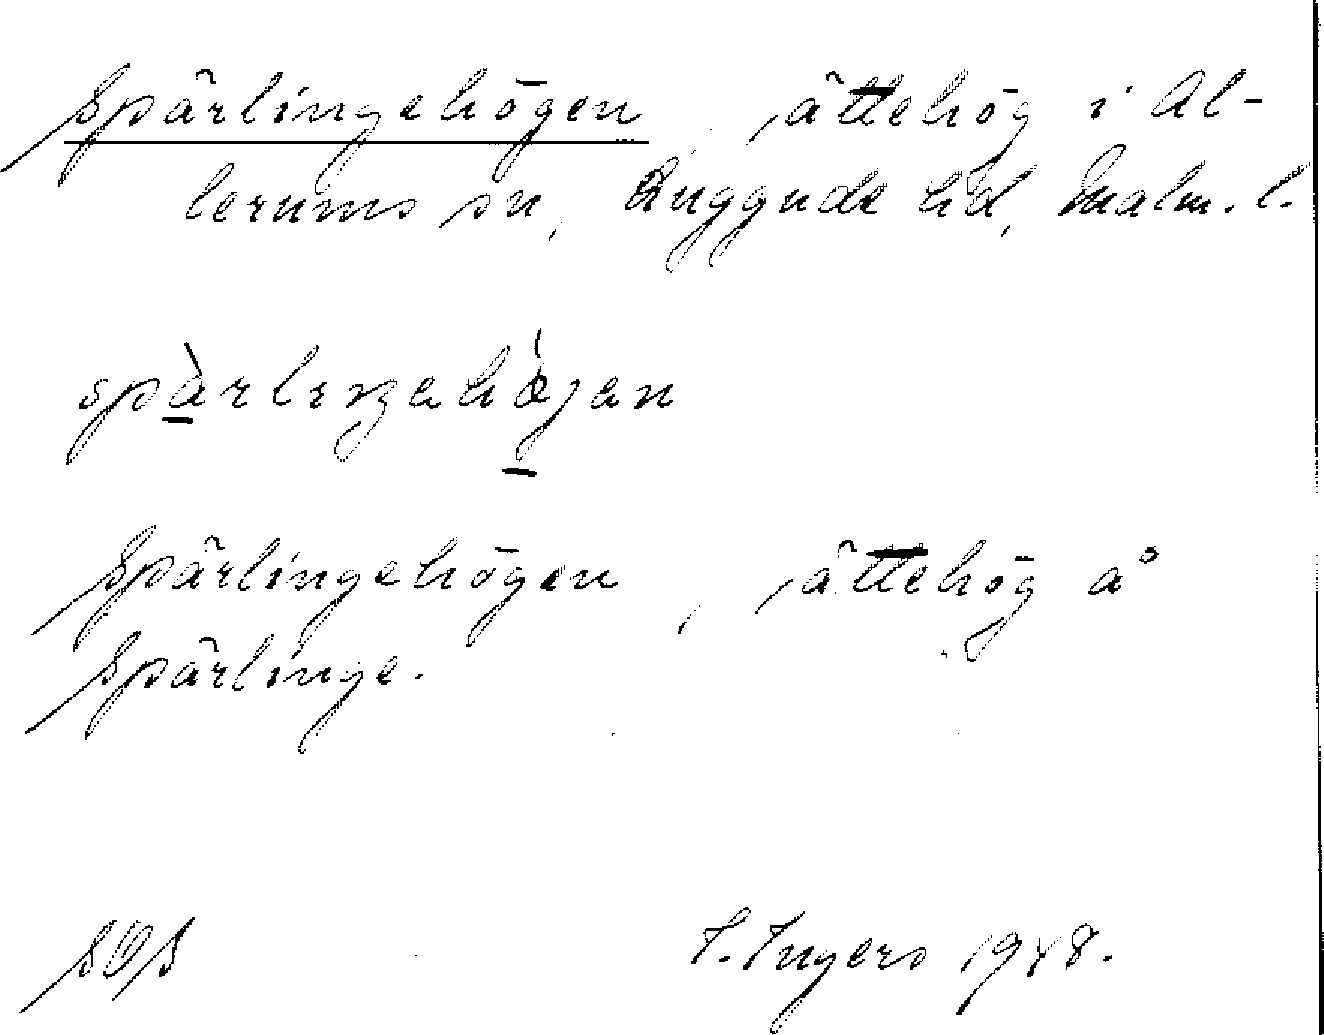 Spärlingehögen, ättehög i Al-
lerums sn, Luggude hd, Malm. l.
spàrleŋahǿjan
Spärlingehögen, ättehög å
Spärlinge.
SOS
I. Ingers 1948.